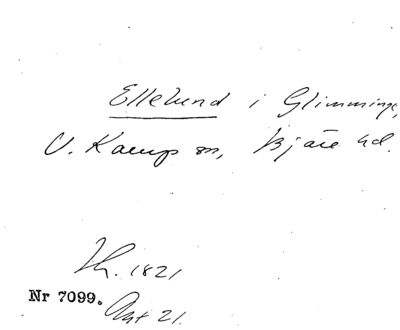 Ellelund i Glimminge,
V. Karup sn, Bjäre hd.
Th. 1821
Nr 7099. Akt 21.